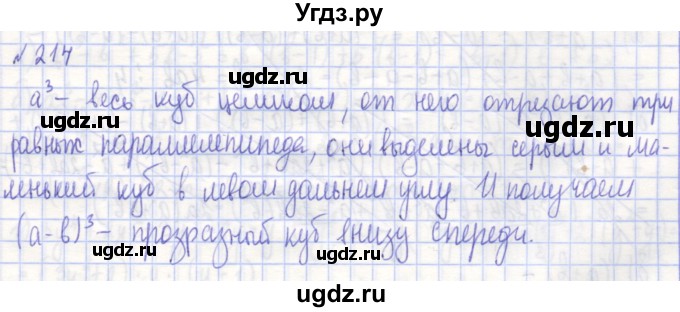 Угдз.ру
№ 214
ugdz.ru ugdz.ru
a³ - весь куб целиком, от него отрезают три
ugdz.ru ugdz.ru
равных параллелепипеда, они выделены серым и ма-
ugdz.ru
ленький куб в левом дальнем углу. И получаем
(a-b)³ - прозразный куб внизу спереди.
ugdz.ru ugdz.ru
ugdz.ru